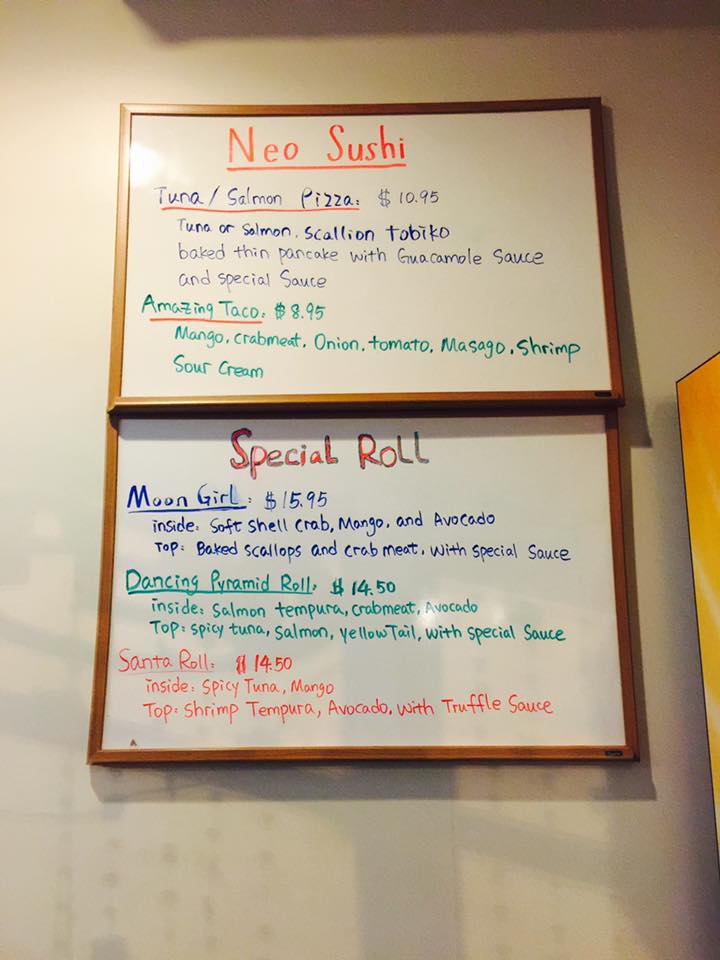 Neo Sushi
Tuna/Salmon Pizza: $10.95
Tuna or Salmon. Scallion tobiko
baked thin pancake with Guacamole Sauce
and special Sauce
Amazing Taco: $8.95
Mango, crabmeat. Onion. tomato. Masago. Shrimp
Sour Cream
Special Roll
Moon Girl: $15.95
inside: Soft Shell Crab, Mango, and Avocado
Top: Baked scallops and crab meat, with special Sauce
Dancing Pyramid Roll: $14.50
inside: Salmon tempura, crabmeat, Avocado
Top: spicy tuna, Salmon, yellow Tail, with special Sauce
Santa Roll: $14.50
inside: Spicy Tuna, Mango
Top: Shrimp Tempura, Avocado, with Truffle Sauce